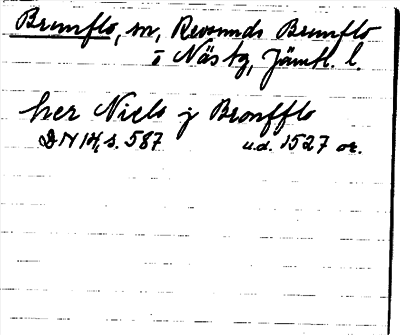 Brunflo, sn, Revsunds Brunflo
i Näs tg, Jämtl. l.
her Niels j Bronfflo
DN 14, s. 587 u.d. 1527 or.